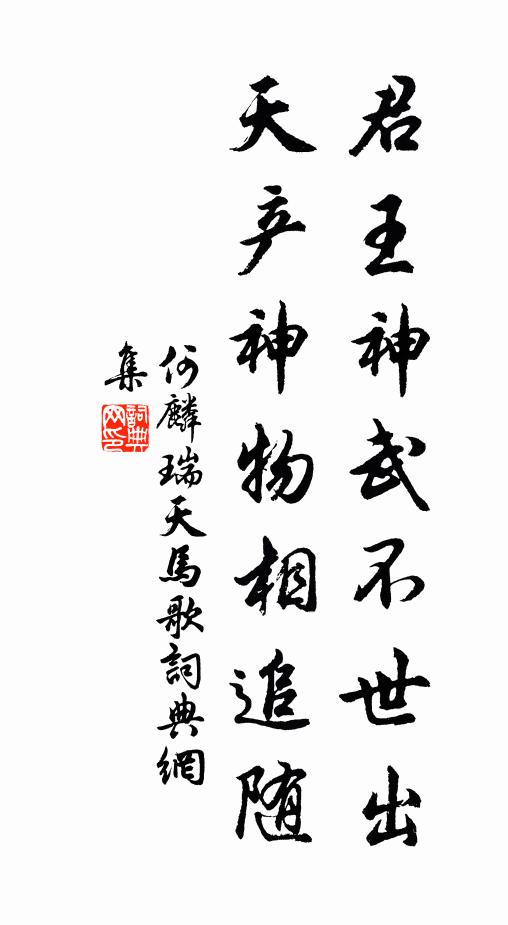 君王神武不世出
天产神物相追随
何麟瑞天馬歌詞典網
集
詞典
网印